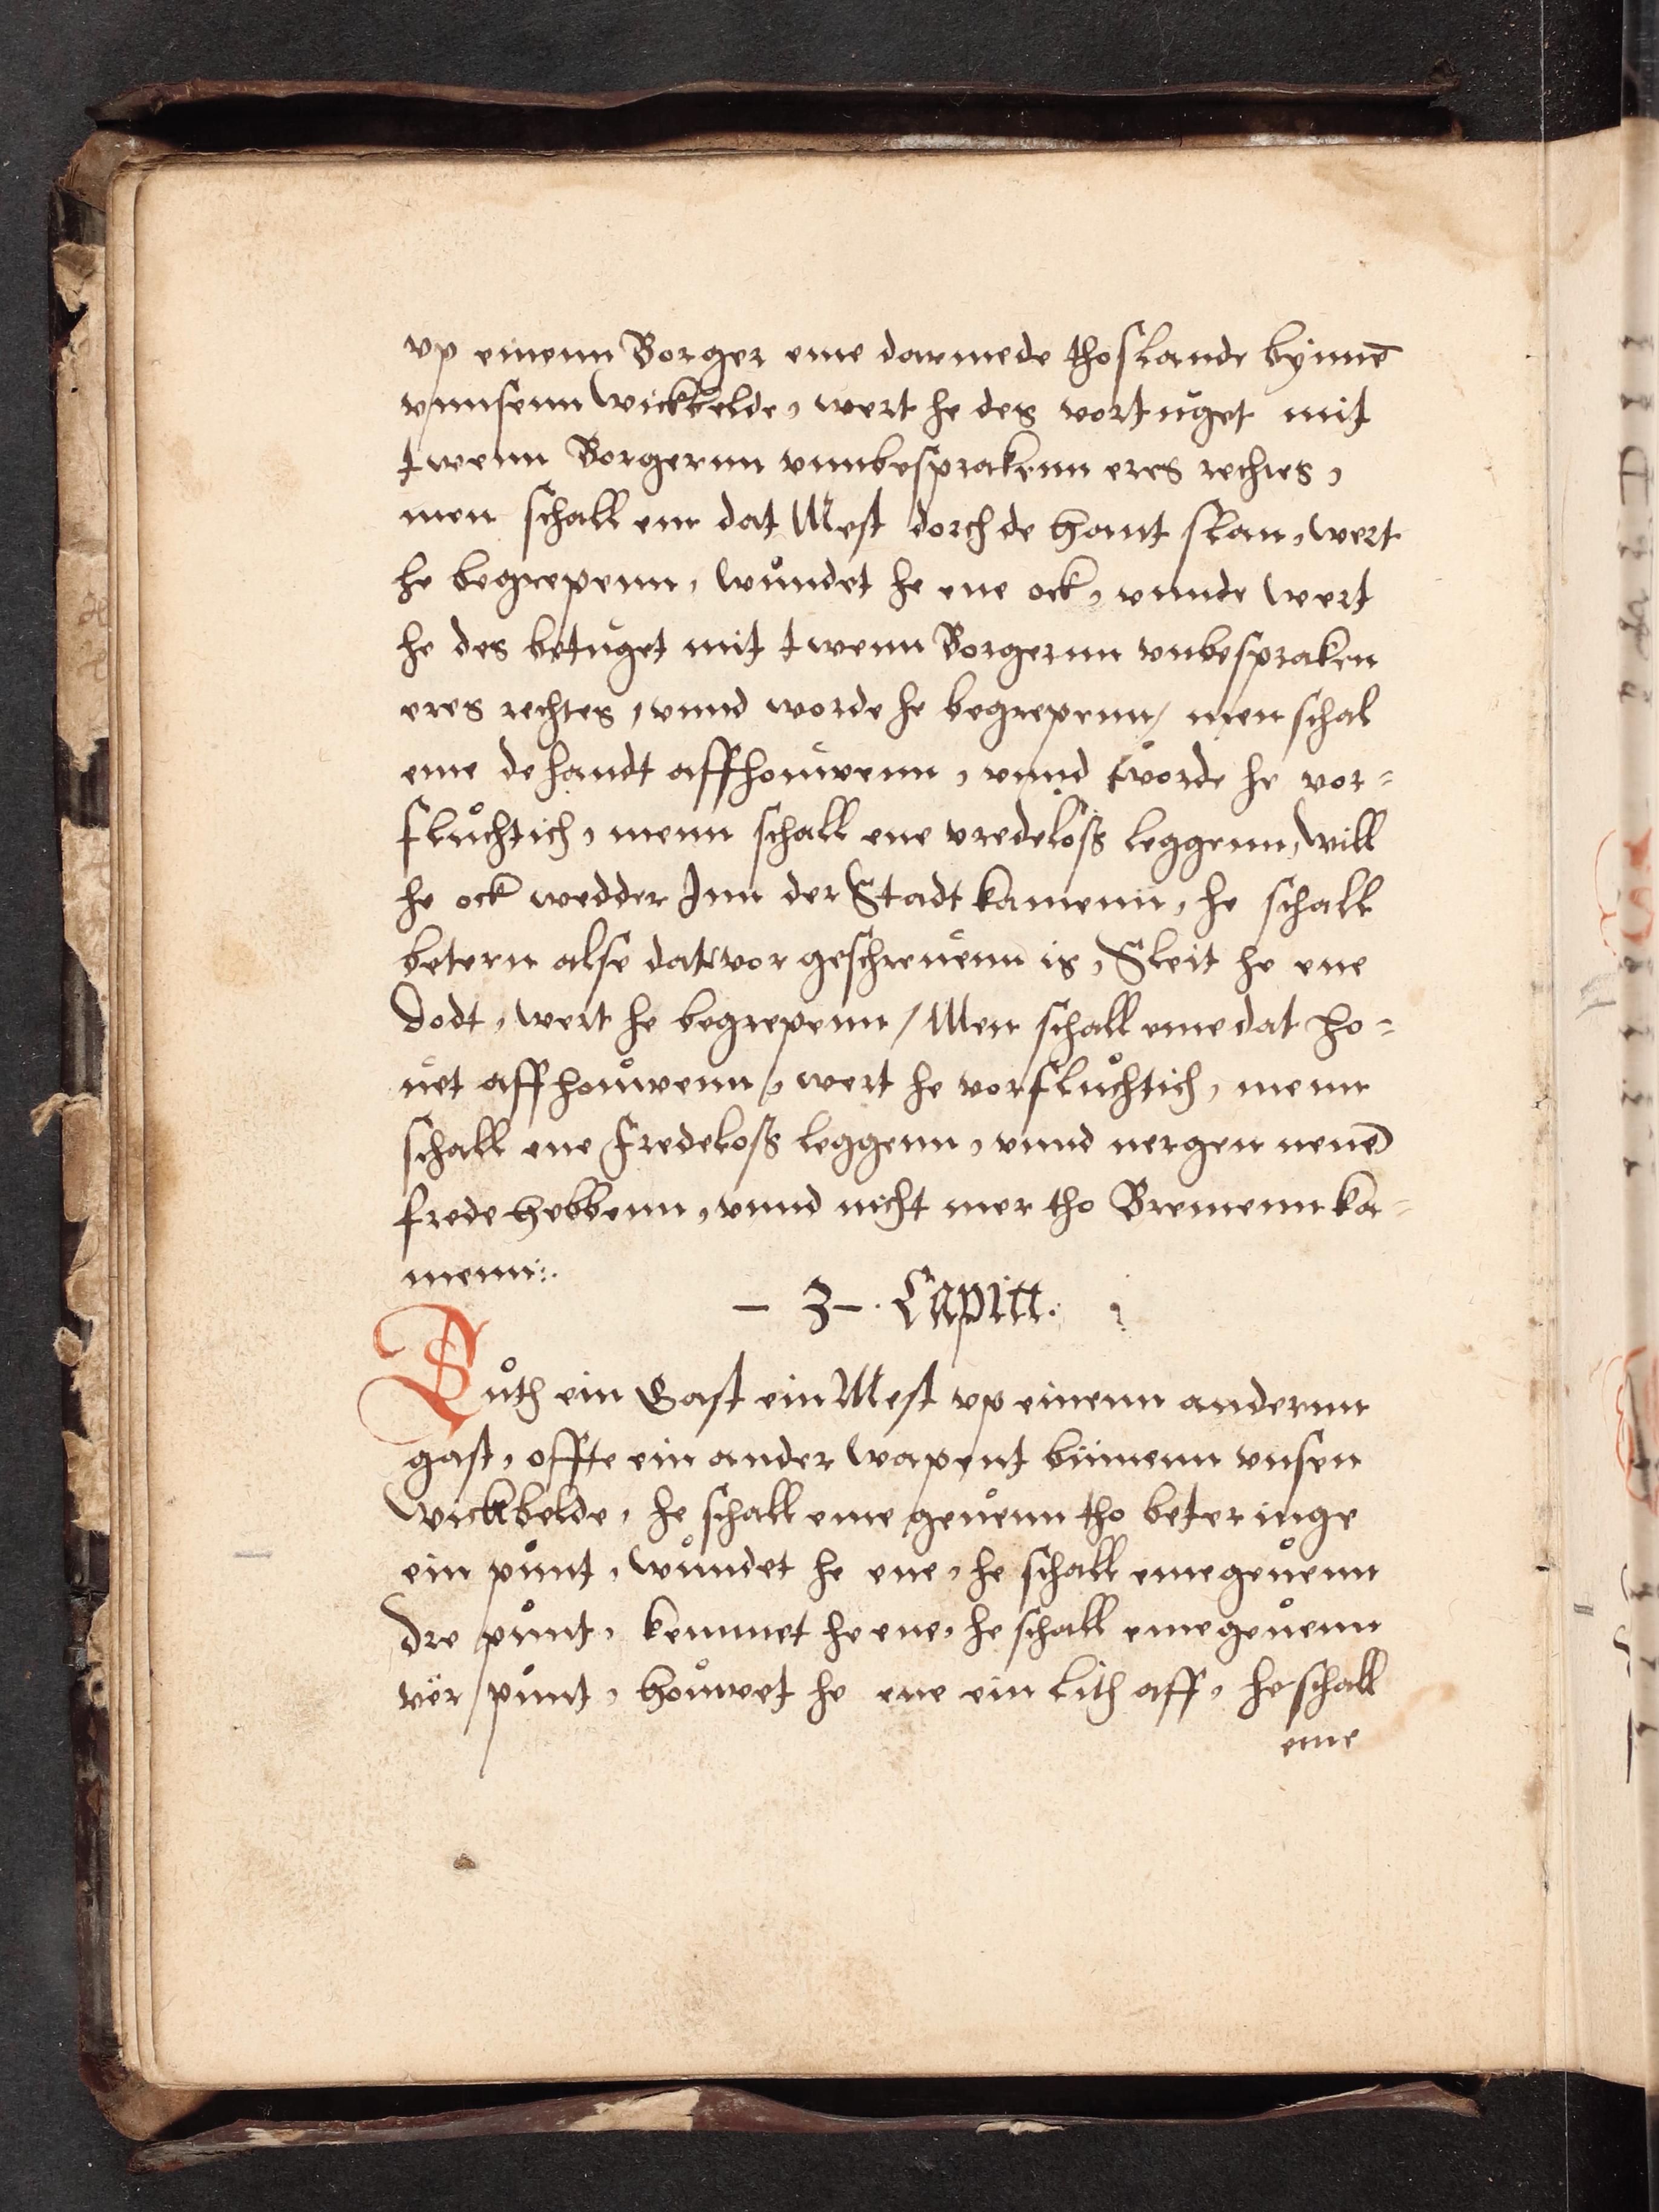 vp einenn Borger eme darmede thoslande bÿnnē
vnnsenn wickbelde, wert he des vortuget mit
twenn Borgernn vnnbesprakenn eres rechtes,
men schall em dat Mest dorch de Hant slan, wert
he begrepenn, wůndet he ene ock, vnnde wert
he des betuget mit twenn Borgernn vnbespraken
eres rechtes, vnnd worde he begrepenn / men schal
eme de handt affhouwenn, vnnd worde he vor=
flůchtich, menn schall ene vredeloß leggenn, will
he ock wedder Inn der Stadt kamenn, he schall
betern alse dat vor geschreuenn is, Sleit he ene
dodt, wert he begrepenn / Men schall eme dat ho=
uet affhouwenn, wert he vorflůchtich, menn
schall ene fredeloß leggenn, vnnd nergen nenē
frede hebbenn, vnnd nicht mer tho Bremenn ka=
menn:.
– 3 –. Capitt.
Zůth ein Gast ein Mest vp einenn andernn
gast, offte ein ander wapent binnenn vnsen
wickbelde, he schall eme geůenn tho beteringe
ein půnt, wůndet he ene, he schall eme geůenn
dre půnt, kemmet he ene, he schall eme geůenn
vër půnt, hoůwet he ene ein lith aff, he schall
eme